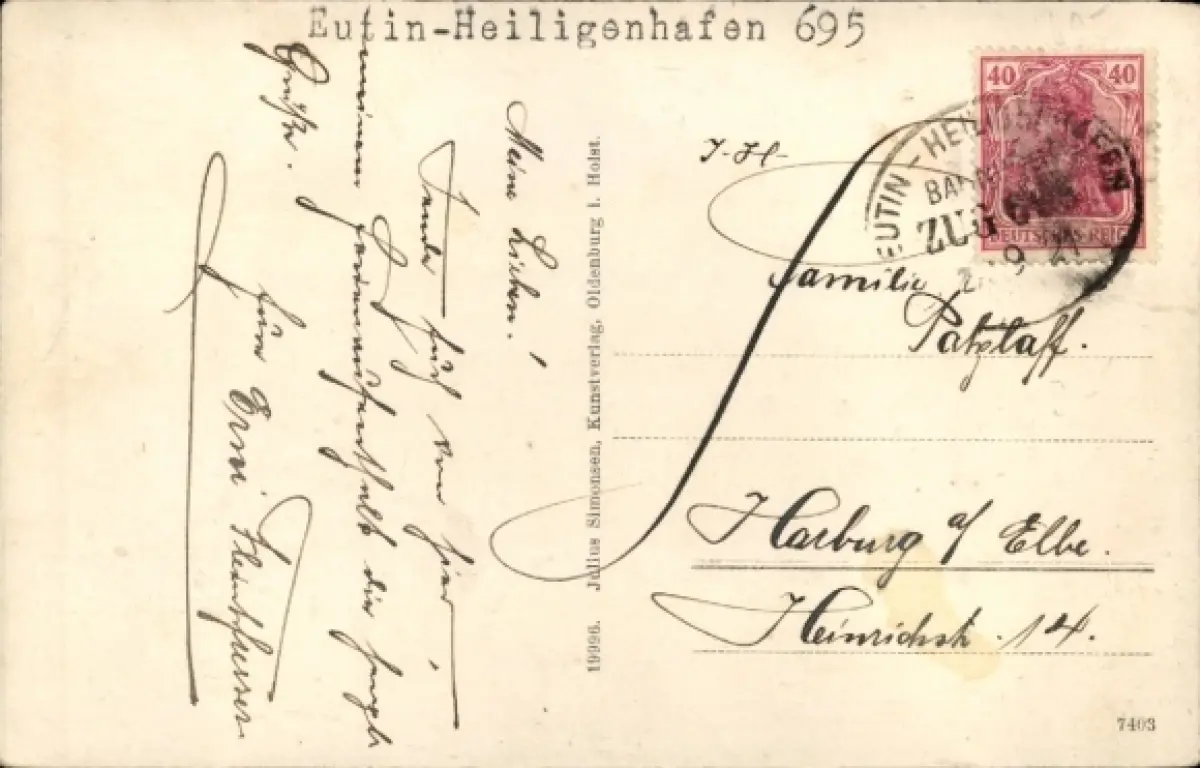 Eutin-Heiligenhafen 695
Meine Lieben!
Sende Euch von hier,
meinem Ferienaufenthalt die herzl.
Grüße.
Erni Steinhauser
19996. Julius Simonsen, Kunstverlag, Oldenburg i. Holst.
40 40
DEUTSCHES REICH
EUTIN - HEILIGENHAFEN
ZUG
Familie
Patzlaff.
Harburg a/ Elbe.
Heinrichstr. 14.
7403